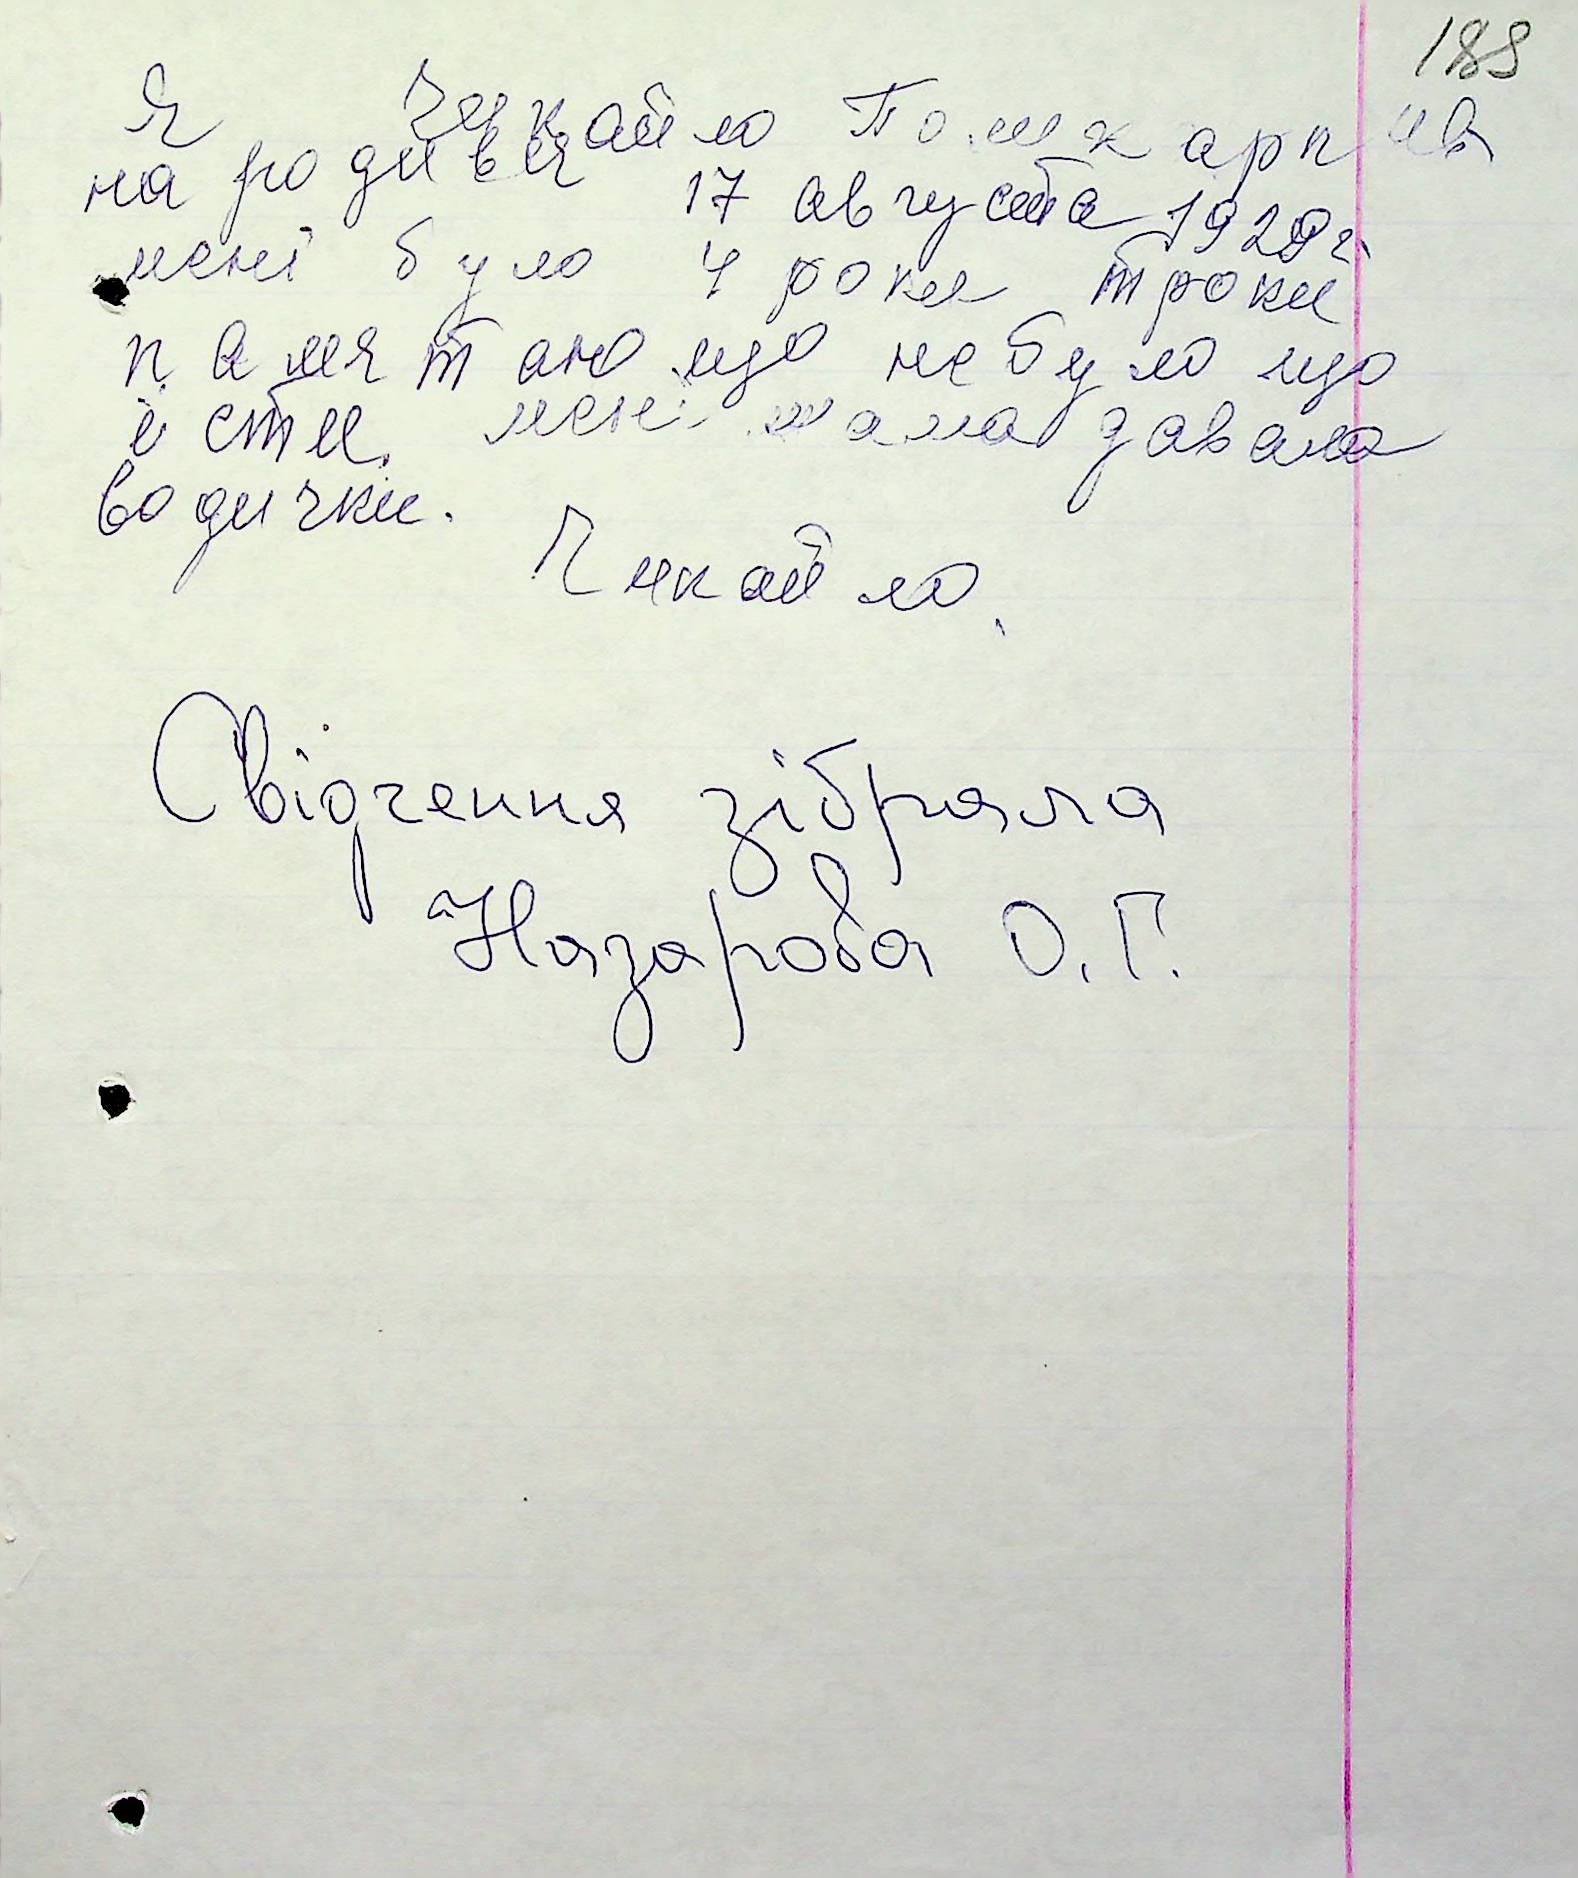 188
Я Чикайло Полікарпив
народився 17 августа 1929г.
мені було 4 роки троки
памятаю що небуло що
їсти. мені мама давала
водички.
Чикайло.
Свідчення зібрала
Назарова О.Г.